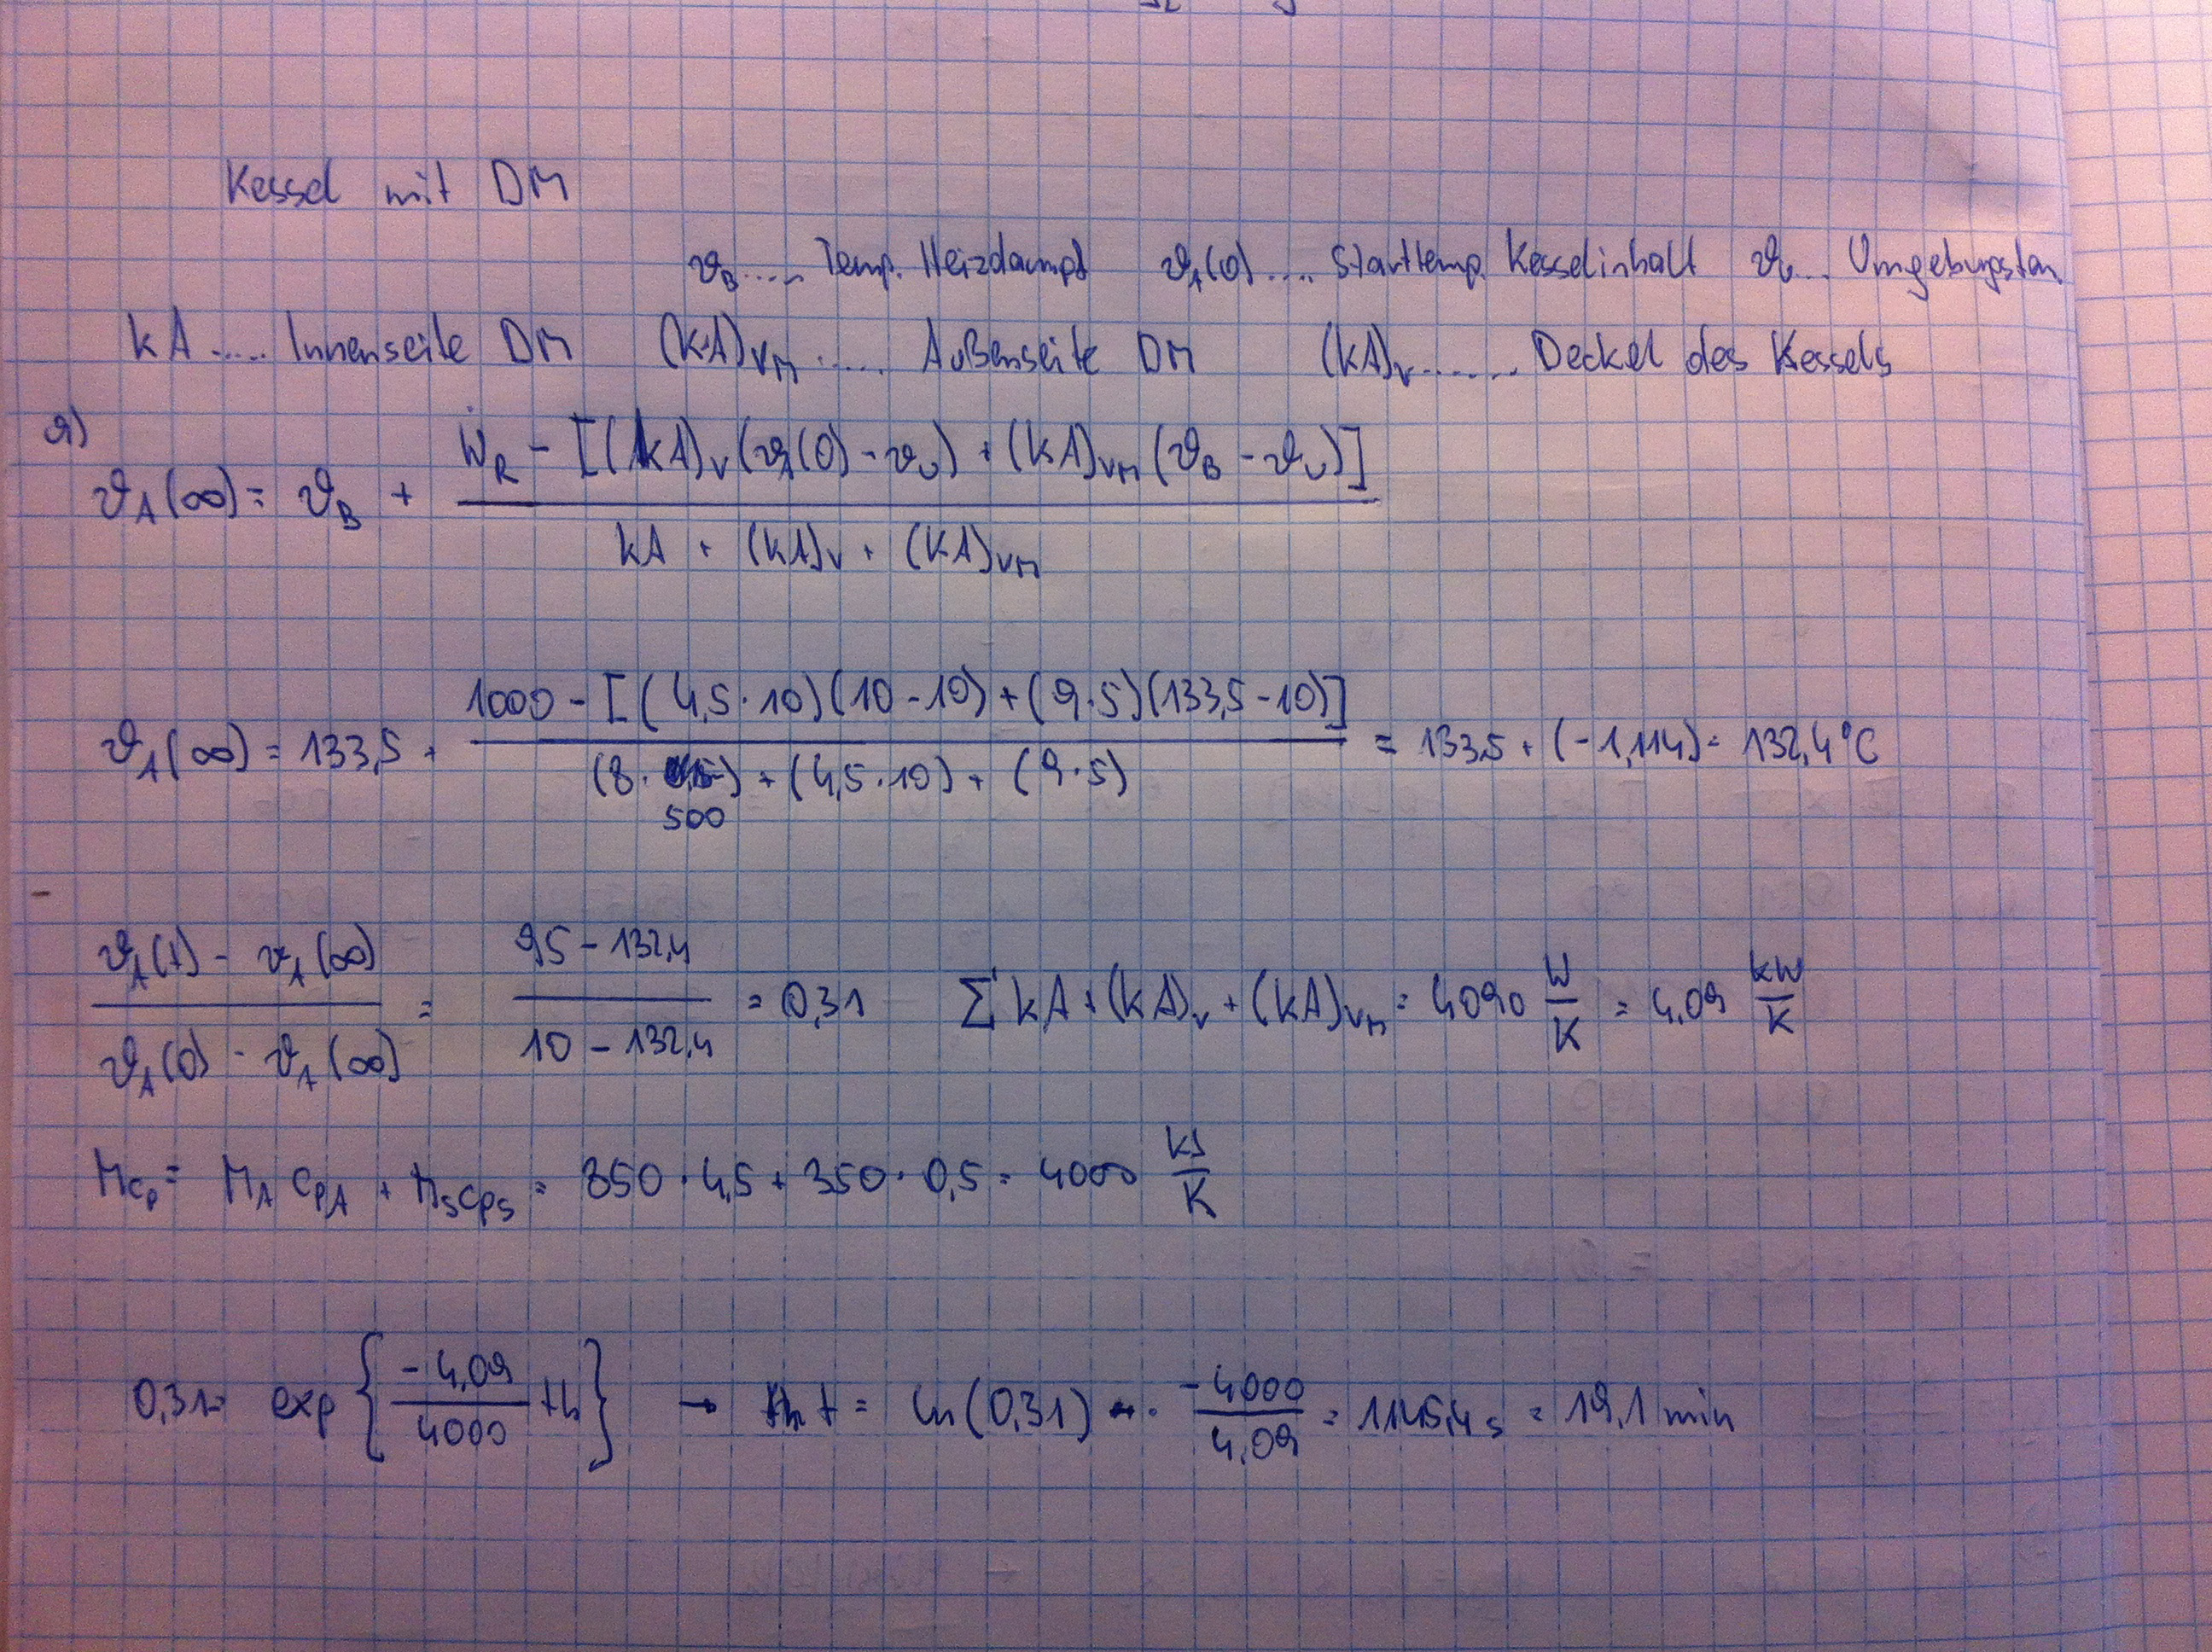 Kessel mit DM
ϑB..... Temp. Heizdampf ϑA(0).... Starttemp. Kesselinhalt ϑU... Umgebungstem
kA..... Innenseite DM (kA)VM..... Außenseite DM (kA)V....... Deckel des Kessels
a)
ϑA(∞) = ϑB + (ẆR - [(kA)V (ϑA(0) - ϑU) + (kA)VM (ϑB - ϑU)]) / (kA + (kA)V + (kA)VM)
ϑA(∞) = 133,5 + (1000 - [(4,5·10)(10-10) + (9·5)(133,5-10)]) / ((8·500) + (4,5·10) + (9·5)) = 133,5 + (-1,114) = 132,4°C
(ϑA(t) - ϑA(∞)) / (ϑA(0) - ϑA(∞)) = (95 - 132,4) / (10 - 132,4) = 0,31 Σ kA + (kA)V + (kA)VM = 4090 W/K = 4,09 kW/K
Mcp = MA cpA + MS cpS = 850 · 4,5 + 350 · 0,5 = 4000 kJ/K
0,31 = exp{(-4,09/4000) th} → t = ln(0,31) · (-4000/4,09) = 1145,4 s = 19,1 min